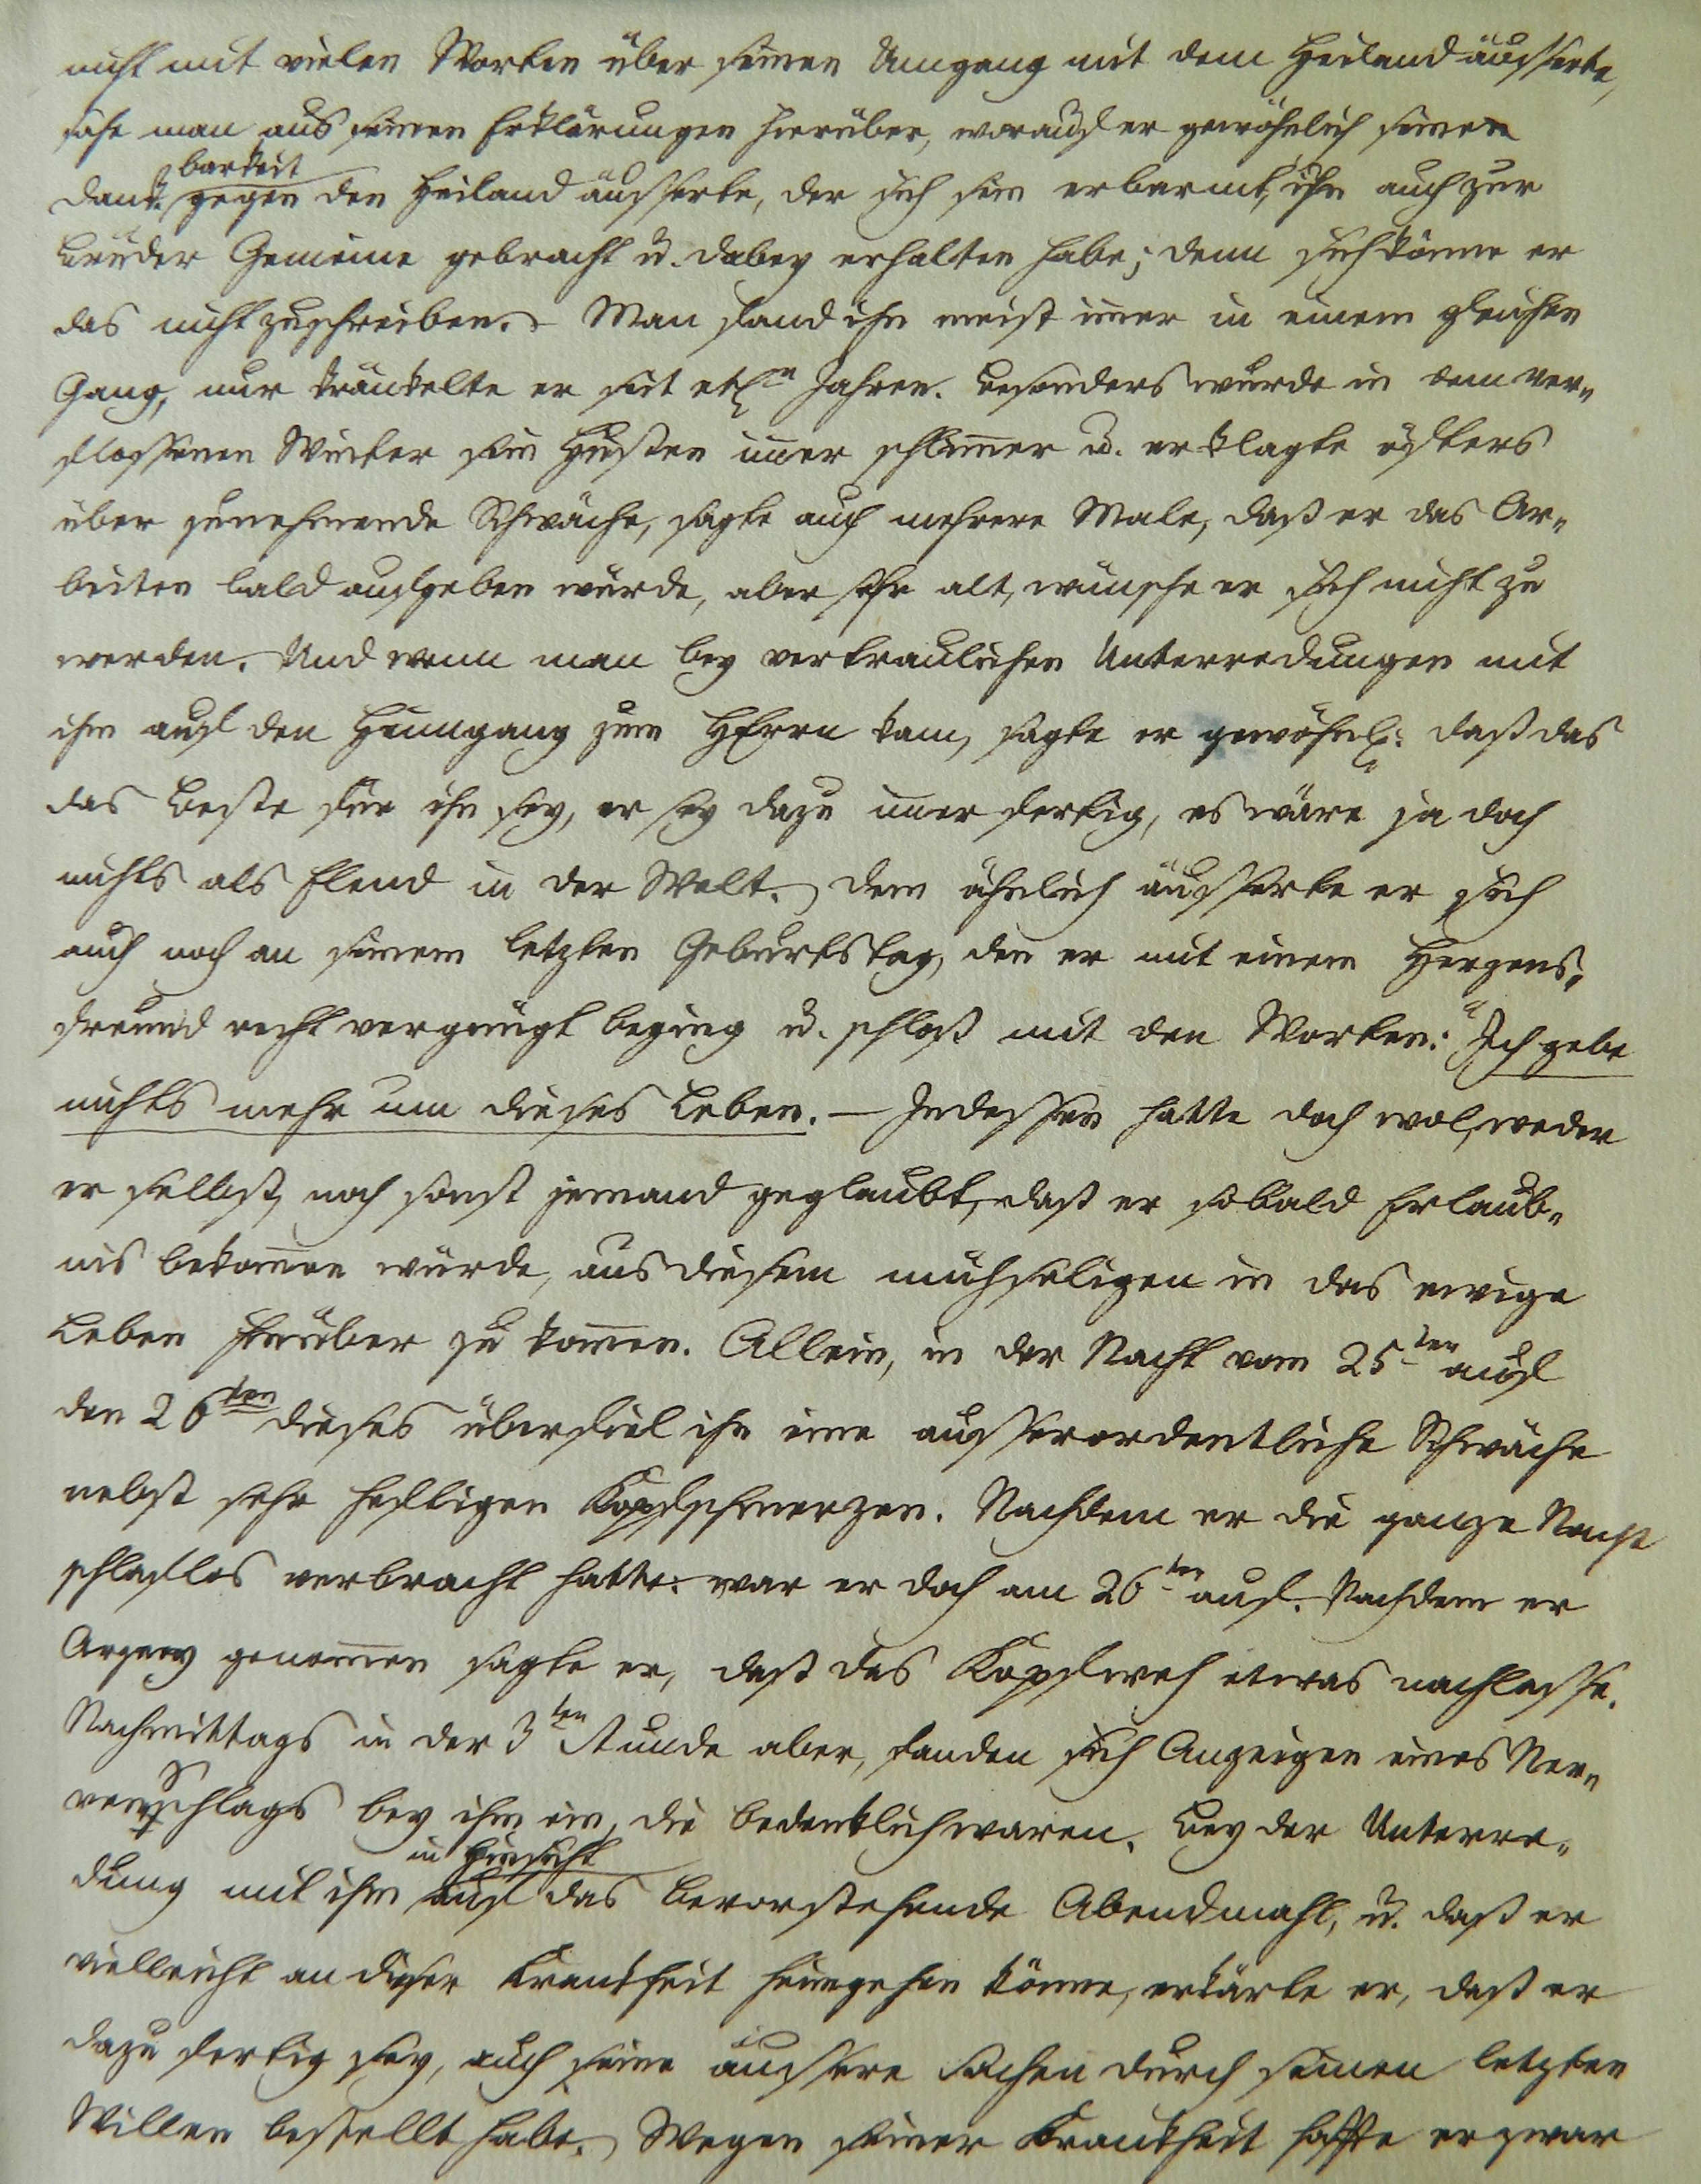 nicht mit vielen Worten über seinen Umgang mit dem Heiland äusserte,
sahe man aus seinen Erklärungen hierüber, worauf er gewöhnlich seine
barkeit
Dank gegen den Heiland äusserte, der sich sein erbarmt, ihn auch zur
Brüder Gemeine gebracht u. dabey erhalten habe; denn sich könne er
das nicht zuschreiben. - Man fand ihn meist im̅er in einem gleichen
Gang, nur kränkelte er seit etln Jahren. Besonders wurde in dem ver„
flossenen Winter sein Husten im̅er schlim̅er u. er klagte öfters
über zunehmende Schwäche, sagte auch mehrere Male, daß er das Ar„
beiten bald aufgeben würde, aber sehr alt, wünsche er sich nicht zu
werden. Und wenn man bey vertraulichen Unterredungen mit
ihm auf den Heimgang zum HErrn kam, sagte er gewöhnl: daß das
das Beste für ihn sey, er sey dazu im̅er fertig, es wäre ja doch
nichts als Elend in der Welt. Dem ähnlich äusserte er sich
auch noch an seinem letzten Geburtstag, den er mit einem Herzens„
freund recht vergnügt beging u. schloß mit den Worten: "Ich gebe
nichts mehr um dieses Leben. — Indessen hatte doch wol, weder
er selbst, noch sonst jemand geglaubt, daß er sobald Erlaub„
nis bekom̅en würde, aus diesem mühseligen in das ewige
Leben hinüber zu kom̅en. Allein, in der Nacht vom 25ten auf
den 26ten dieses überfiel ihn eine ausserordentliche Schwäche
nebst sehr heftigen Kopfschmerzen. Nachdem er die ganze Nacht
schlaflos verbracht hatte: war er doch am 26ten auf. Nachdem er
Arzney genom̅en sagte er, daß das Kopfweh etwas nachlasse.
Nachmittags in der 3ten Stunde aber, fanden sich Anzeigen eines Ner„
venSchlags bey ihm ein, die bedenklich waren. Bey der Unterre„
in Hinsicht
dung mit ihm auf das bevorstehende Abendmahl, u. daß er
vielleicht an dieser Krankheit heimgehen könne, erkärte er, daß er
dazu fertig sey, auch seine äussere Sachen durch seinen letzten
Willen bestellt habe. Wegen seiner Krankheit hoffte er zwar